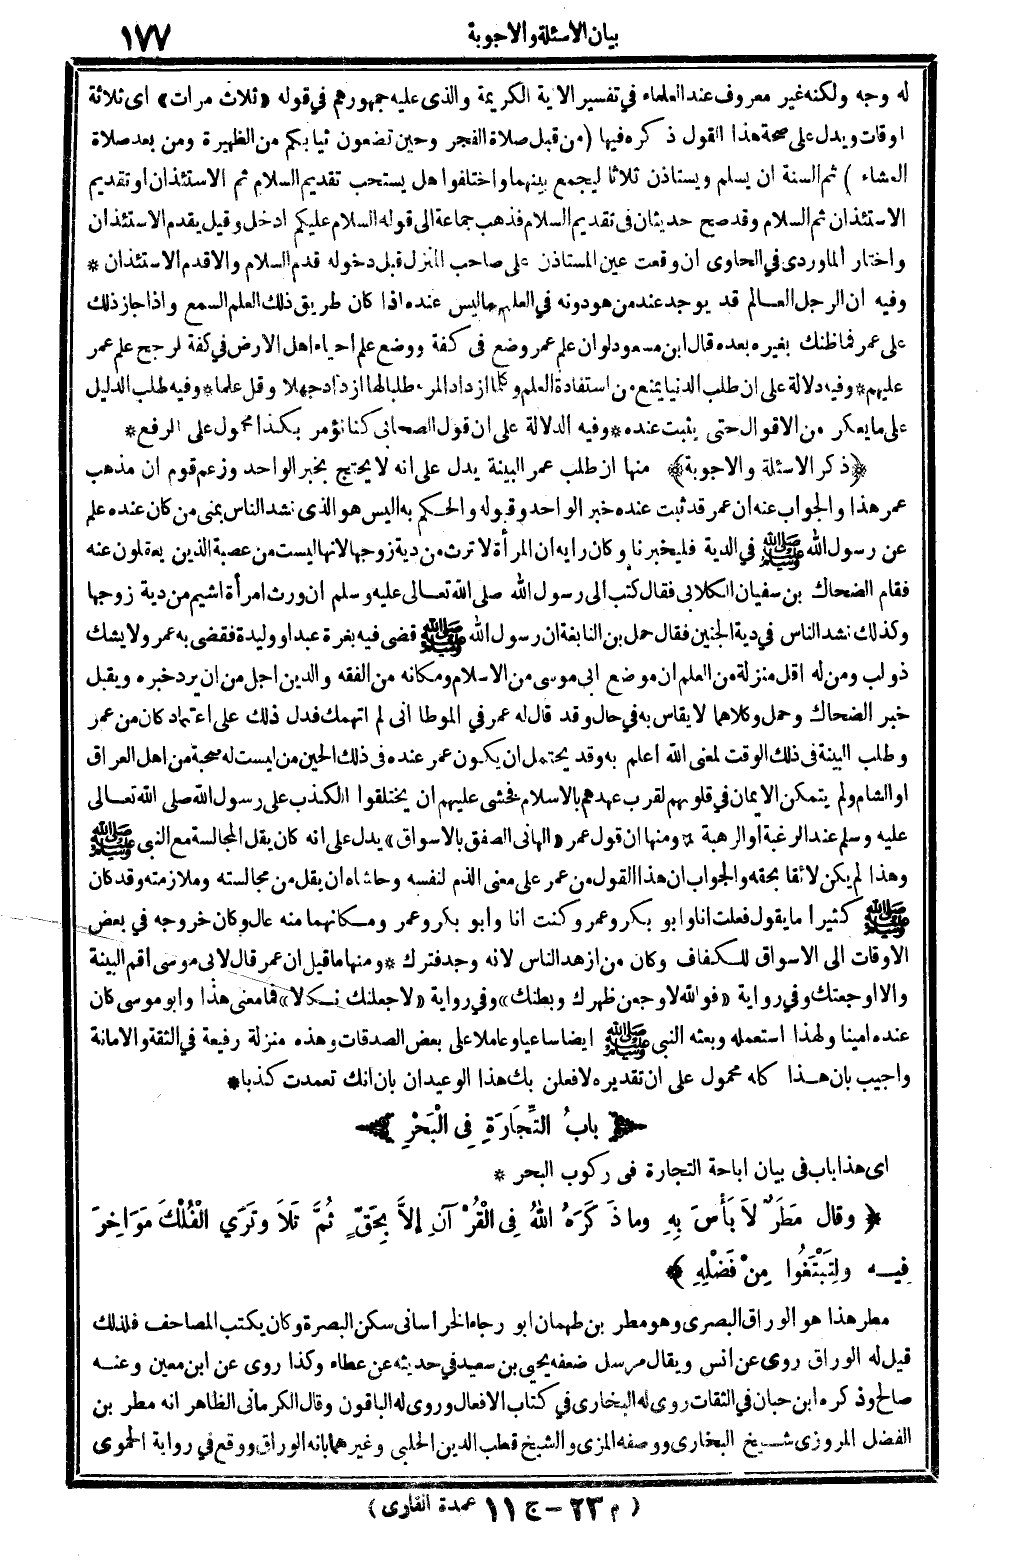 بيان الاسئلة والاجوبة
١٧٧
له وجه ولكنه غير معروف عند العلماء في تفسير الاية الكريمة والذى عليه جمهورهم في قوله «ثلاث مرات» اى ثلاثة
اوقات ويدل على صحة هذا القول ذكره فيها (من قبل صلاة الفجر وحين تضعون ثيابكم من الظهيرة ومن بعد صلاة
العشاء ) ثم السنة ان يسلم ويستاذن ثلاثا ليجمع بينهما واختلفوا هل يستحب تقديم السلام ثم الاستئذان او تقديم
الاستئذان ثم السلام وقد صح حديثان فى تقديم السلام فذهب جماعة الى قوله السلام عليكم ادخل وقيل يقدم الاستئذان
واختار الماوردى في الحاوى ان وقعت عين المستاذن على صاحب المنزل قبل دخوله قدم السلام والا قدم الاستئذان *
وفيه ان الرجل العالم قد يوجد عند من هو دونه في العلم ما ليس عنده اذا كان طريق ذلك العلم السمع واذا جاز ذلك
على عمر فما ظنك بغيره بعده قال ابن مسعود لو ان علم عمر وضع فى كفة ووضع علم احياء اهل الارض في كفة لرجح علم عمر
عليهم * وفيه دلالة على ان طلب الدنيا يمنع من استفادة العلم وكلما ازداد المرء طلبا لها ازداد جهلا وقل علما * وفيه طلب الدليل
على ما يعكر من الاقوال حتى يثبت عنده * وفيه الدلالة على ان قول الصحابى كنا نؤمر بكذا محمول على الرفع *
﴿ذكر الاسئلة والاجوبة﴾ منها ان طلب عمر البينة يدل على انه لا يحتج بخبر الواحد وزعم قوم ان مذهب
عمر هذا والجواب عنه ان عمر قد ثبت عنده خبر الواحد وقبوله والحكم به اليس هو الذى نشد الناس بمنى من كان عنده علم
عن رسول الله ﷺ في الدية فليخبرنا وكان رايه ان المرأة لا ترث من دية زوجها لانها ليست من عصبة الذين يعقلون عنه
فقام الضحاك بن سفيان الكلابى فقال كتب الى رسول الله صلى الله تعالى عليه وسلم ان ورث امرأة اشيم من دية زوجها
وكذلك نشد الناس في دية الجنين فقال حمل بن النابغة ان رسول الله ﷺ قضى فيه بغرة عبد او وليدة فقضى به عمر ولا يشك
ذو لب ومن له اقل منزلة من العلم ان موضع ابى موسى من الاسلام ومكانه من الفقه والدين اجل من ان يرد خبره ويقبل
خبر الضحاك وحمل وكلاهما لا يقاس به في حال وقد قال له عمر في الموطا انى لم اتهمك فدل ذلك على اعتماد كان من عمر
وطلب البينة فى ذلك الوقت لمعنى الله اعلم به وقد يحتمل ان يكون عمر عنده فى ذلك الحين من ليست له صحبة من اهل العراق
او الشام ولم يتمكن الايمان فى قلوبهم لقرب عهدهم بالاسلام فخشى عليهم ان يختلقوا الكذب على رسول الله صلى الله تعالى
عليه وسلم عند الرغبة او الرهبة * ومنها ان قول عمر «الهانى الصفق بالاسواق» يدل على انه كان يقل المجالسة مع النبى ﷺ
وهذا لم يكن لائقا بحقه والجواب ان هذا القول من عمر على معنى الذم لنفسه وحاشاه ان يقل من مجالسته وملازمته وقد كان
ﷺ كثيرا ما يقول فعلت انا وابو بكر وعمر وكنت انا وابو بكر وعمر ومكانهما منه عال وكان خروجه في بعض
الاوقات الى الاسواق للكفاف وكان من ازهد الناس لانه وجد فترك * ومنها ما قيل ان عمر قال لابى موسى اقم البينة
والا اوجعتك وفي رواية «فوالله لاوجعن ظهرك وبطنك» وفي رواية «لاجعلنك نكالا» فما معنى هذا وابو موسى كان
عنده امينا ولهذا استعمله وبعثه النبى ﷺ ايضا ساعيا وعاملا على بعض الصدقات وهذه منزلة رفيعة في الثقة والامانة
واجيب بان هذا كله محمول على ان تقديره لافعلن بك هذا الوعيد ان بان انك تعمدت كذبا *
﴿ بابُ التِّجَارَةِ فِى الْبَحْرِ ﴾
اى هذا باب فى بيان اباحة التجارة فى ركوب البحر *
﴿ وقال مَطَرٌ لاَ بَأْسَ بِهِ وما ذَكَرَهُ اللهُ فِى الْقُرْآنِ إلاَّ بِحَقٍّ ثُمَّ تَلاَ وتَرَي الْفُلْكَ مَوَاخِرَ
فِيهِ ولِتَبْتَغُوا مِنْ فَضْلِهِ ﴾
مطر هذا هو الوراق البصرى وهو مطر بن طهمان ابو رجاء الخراسانى سكن البصرة وكان يكتب المصاحف فلذلك
قيل له الوراق روى عن انس ويقال مرسل ضعفه يحيى بن سعيد في حديثه عن عطاء وكذا روى عن ابن معين وعنه
صالح وذكره ابن حبان في الثقات روى له البخارى في كتاب الافعال وروى له الباقون وقال الكرمانى الظاهر انه مطر بن
الفضل المروزى شيخ البخارى ووصفه المزى والشيخ قطب الدين الحلبى وغيرهما بانه الوراق ووقع في رواية الحموى
( م ٢٣ – ج ١١ عمدة القارى )